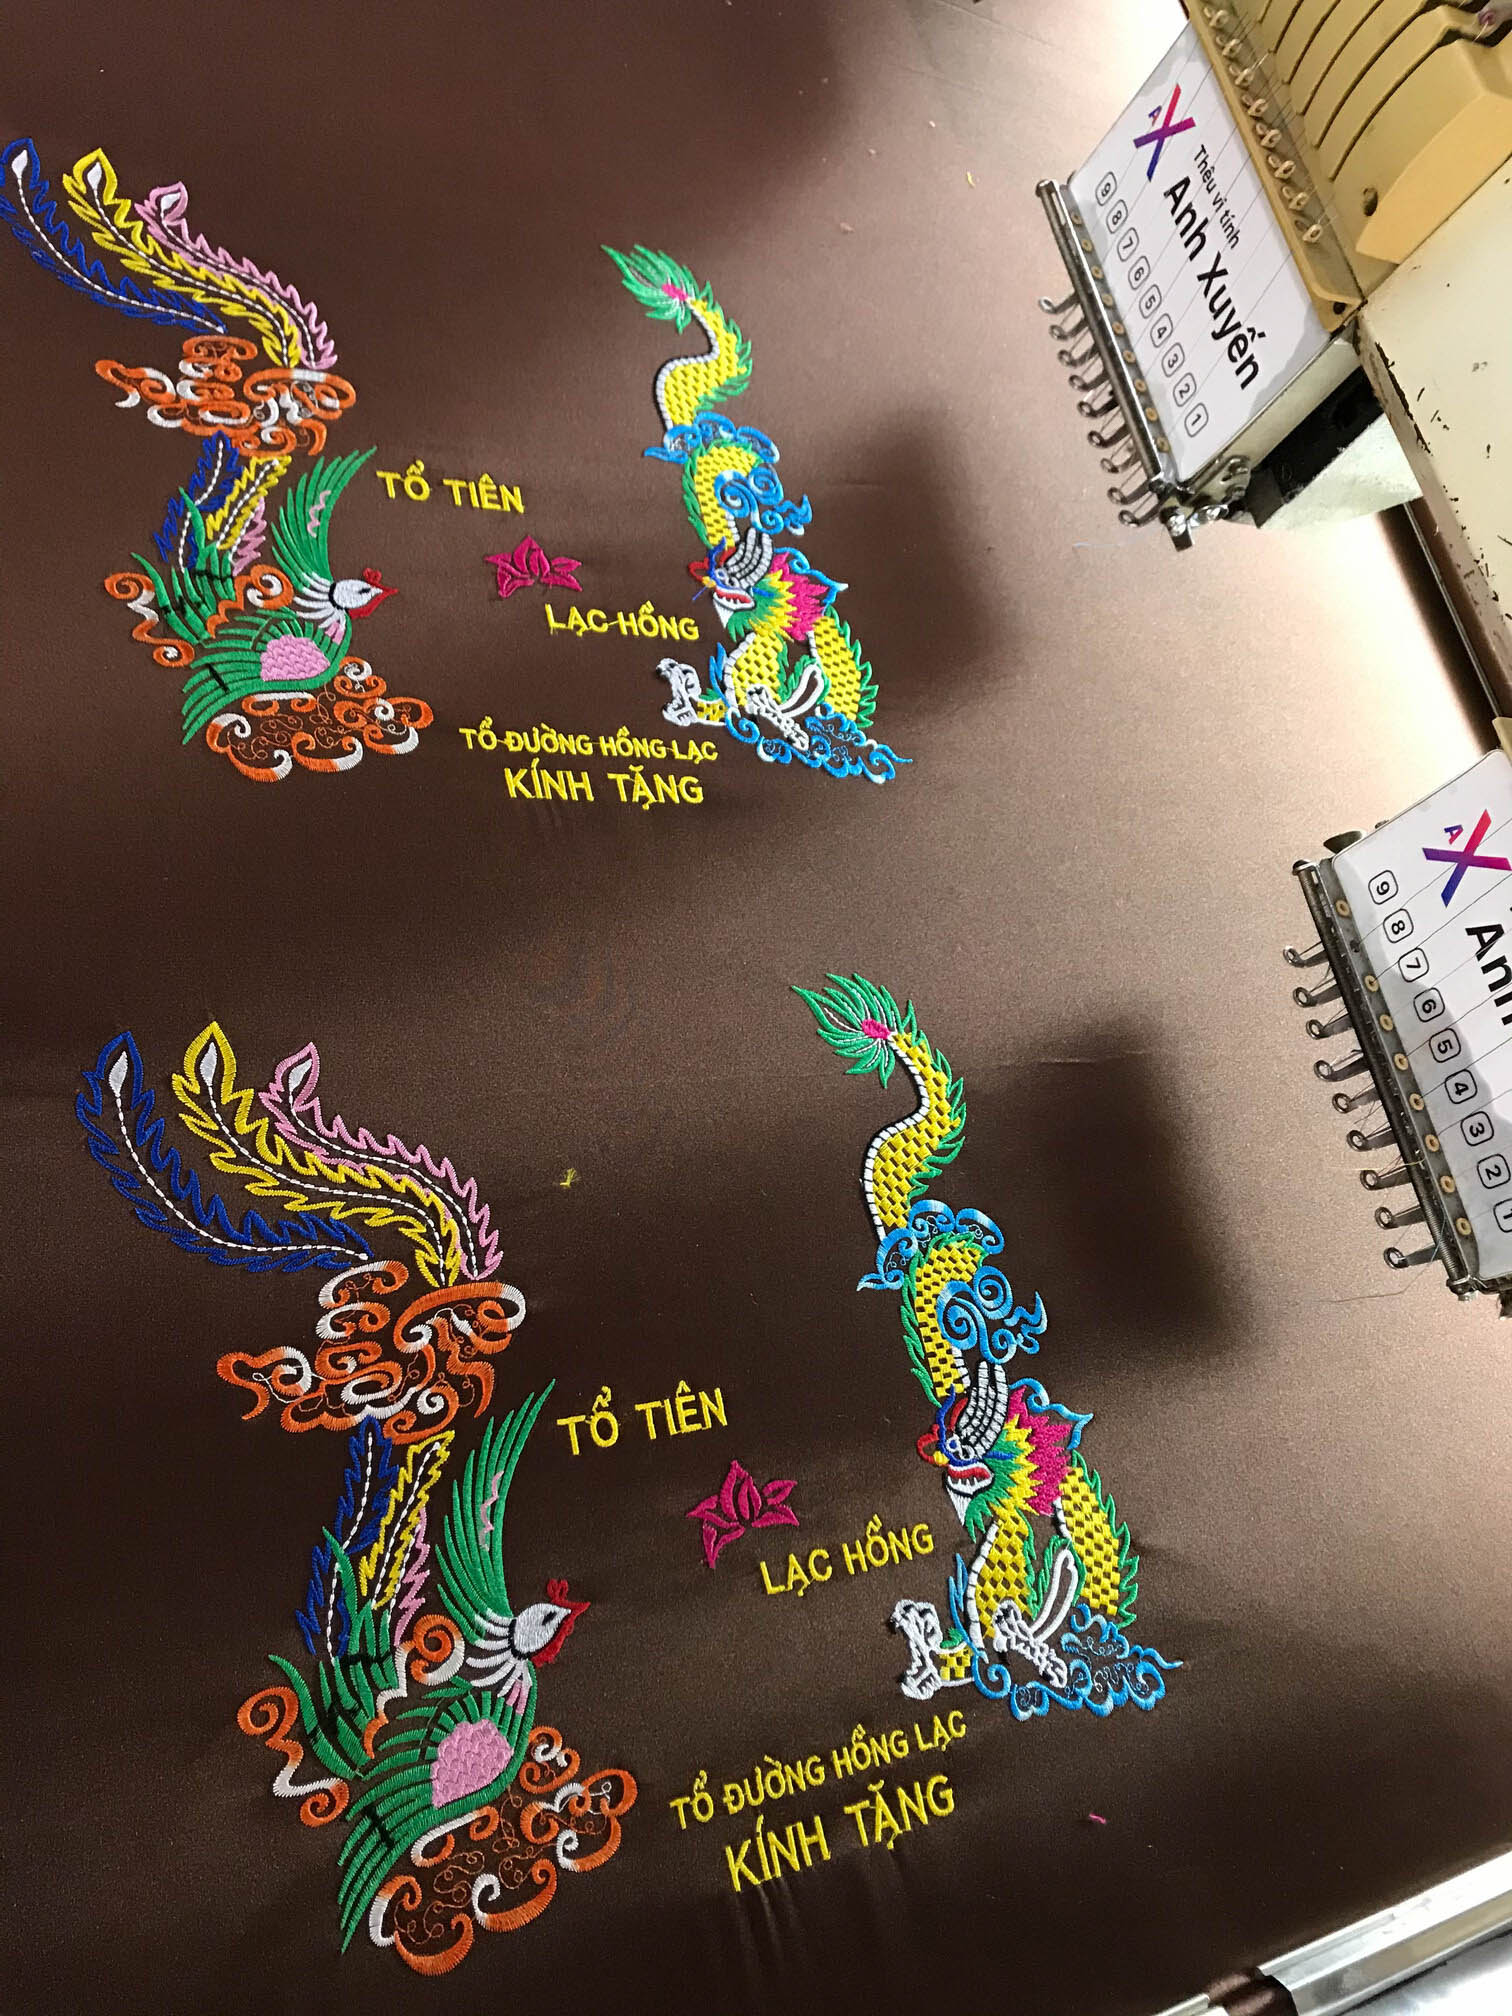 TỔ TIÊN
LẠC HỒNG
TỔ ĐƯỜNG HỒNG LẠC
KÍNH TẶNG
AX
Thêu vi tính
Anh Xuyến
9 8 7 6 5 4 3 2 1
TỔ TIÊN
LẠC HỒNG
TỔ ĐƯỜNG HỒNG LẠC
KÍNH TẶNG
AX
Anh
9 8 7 6 5 4 3 2 1